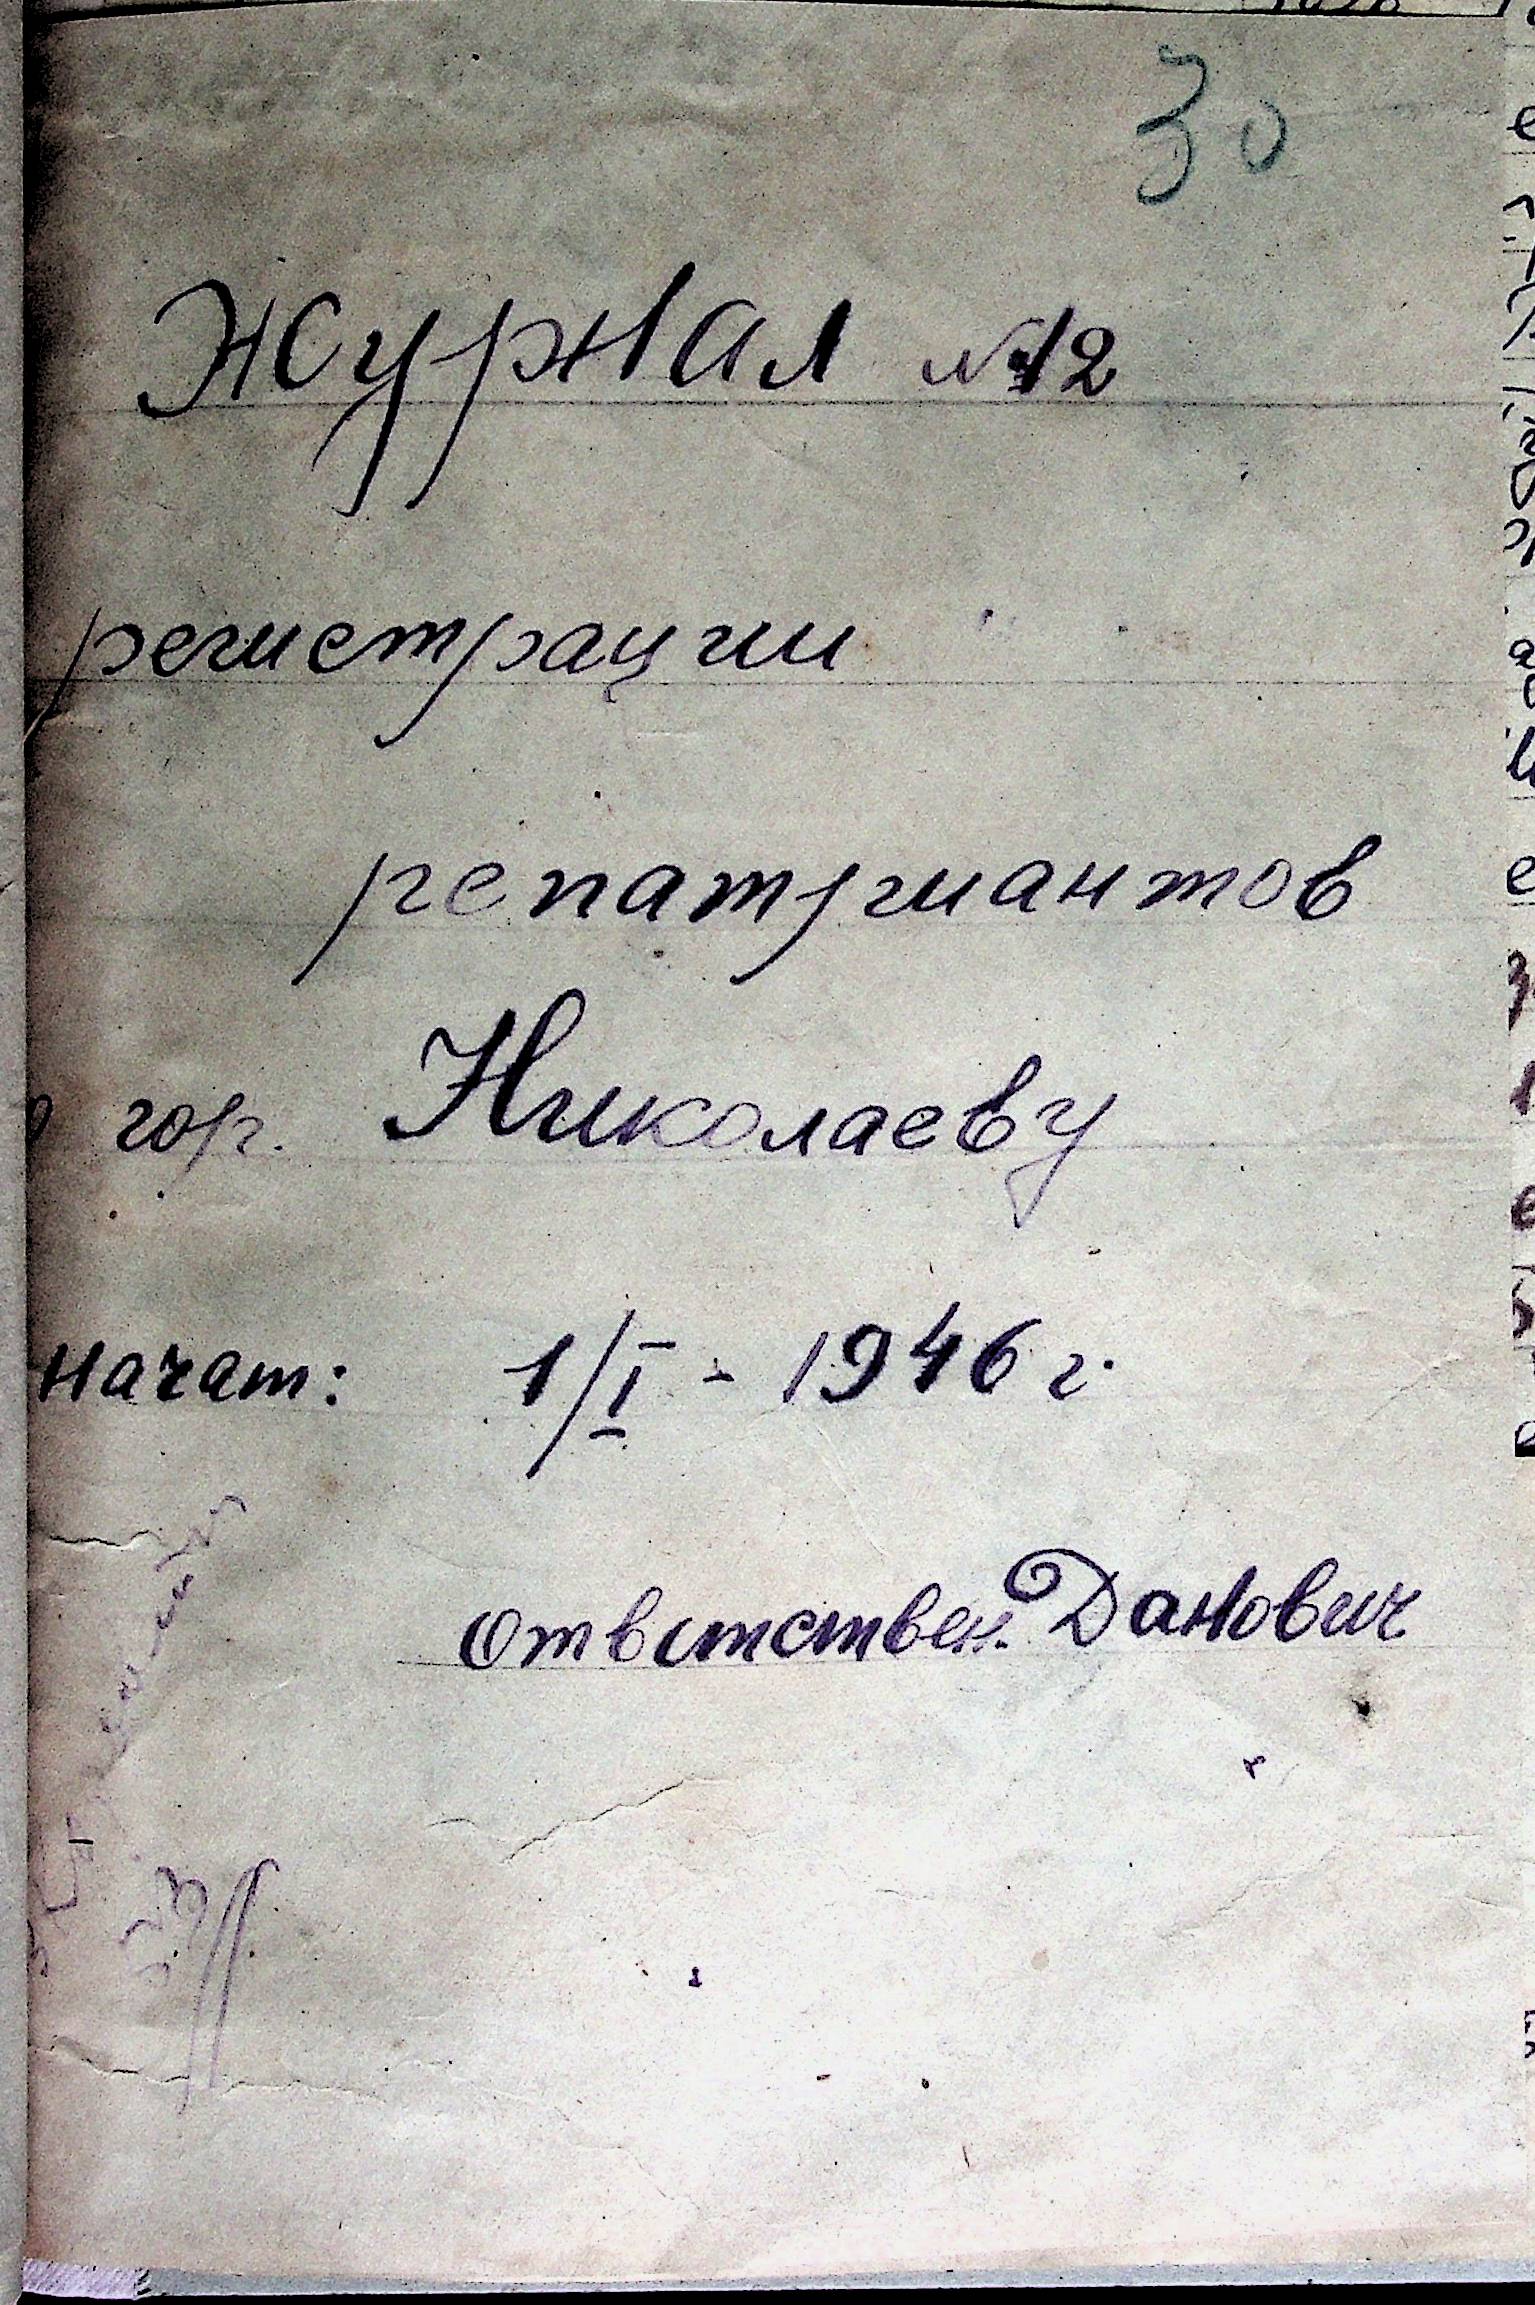 30
Журнал №12
регистрации
репатриантов
гор. Николаеву
Начат: 1/I - 1946 г.
Ответствен. Данович